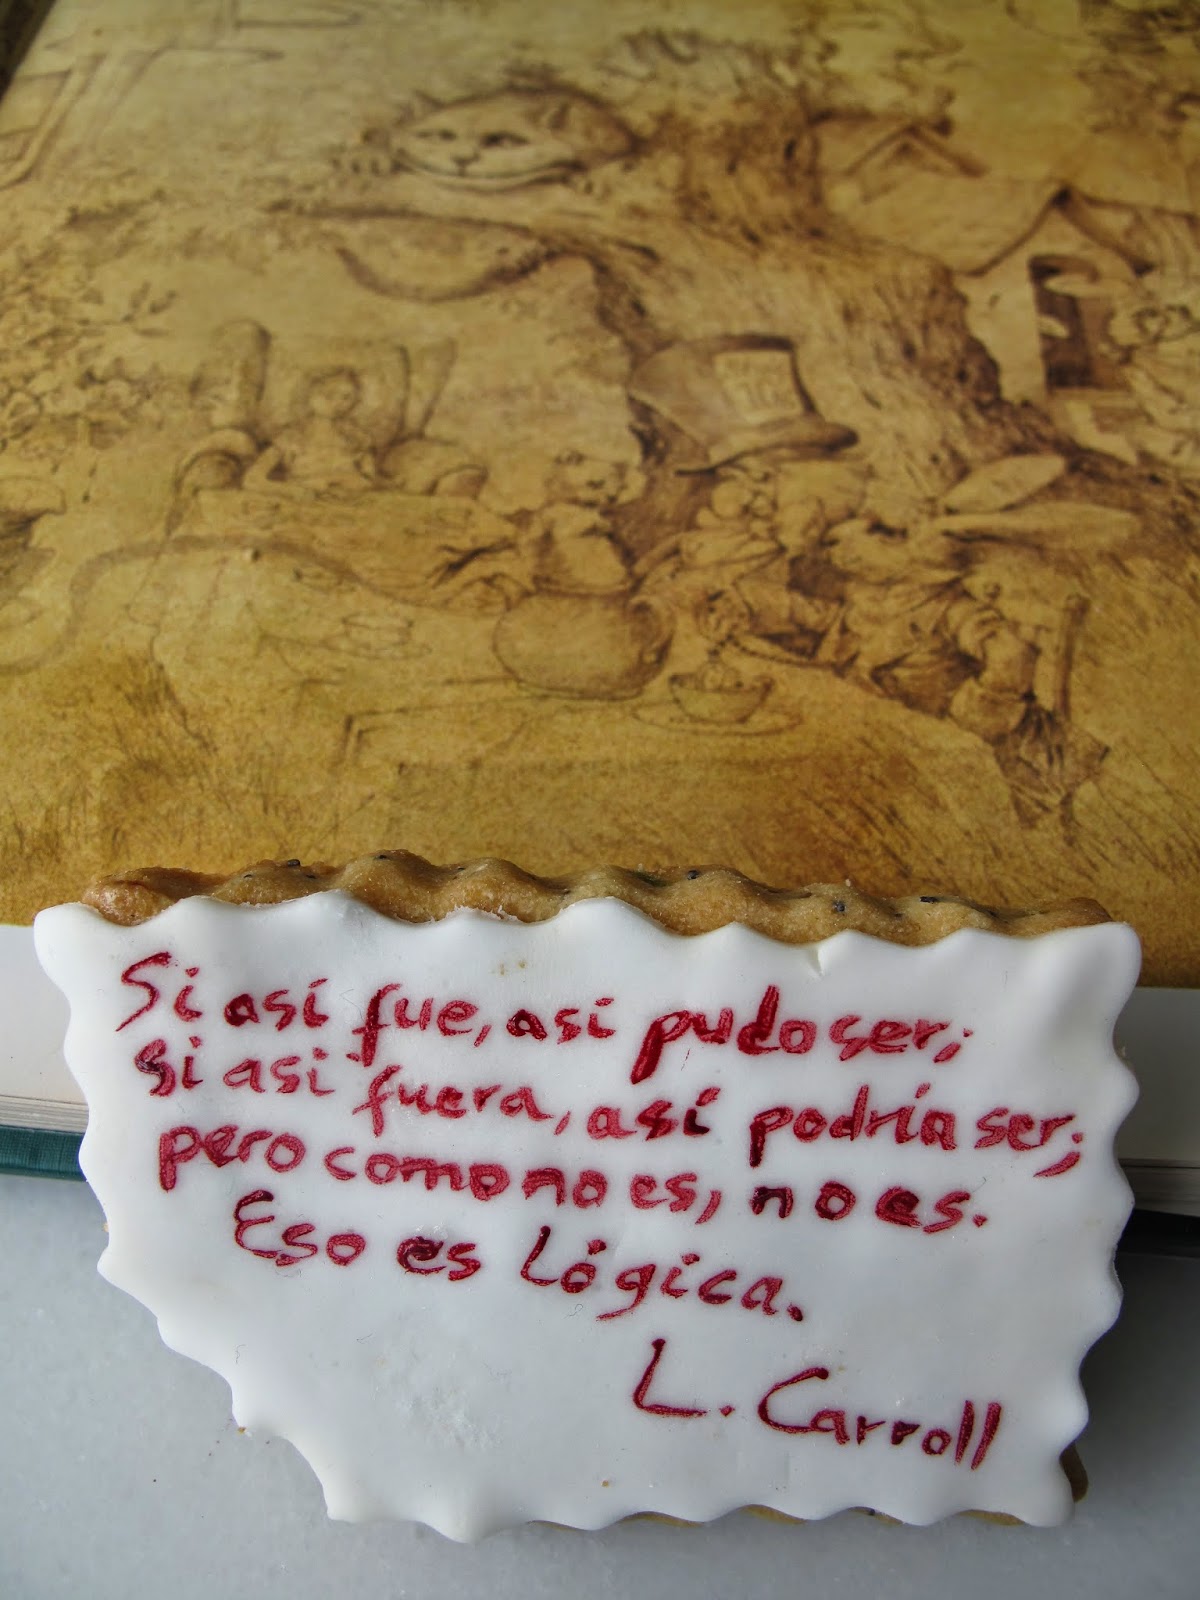 Si así fue, así pudo ser;
si asi fuera, así podría ser;
pero como no es, no es.
Eso es lógica.
L. Carroll